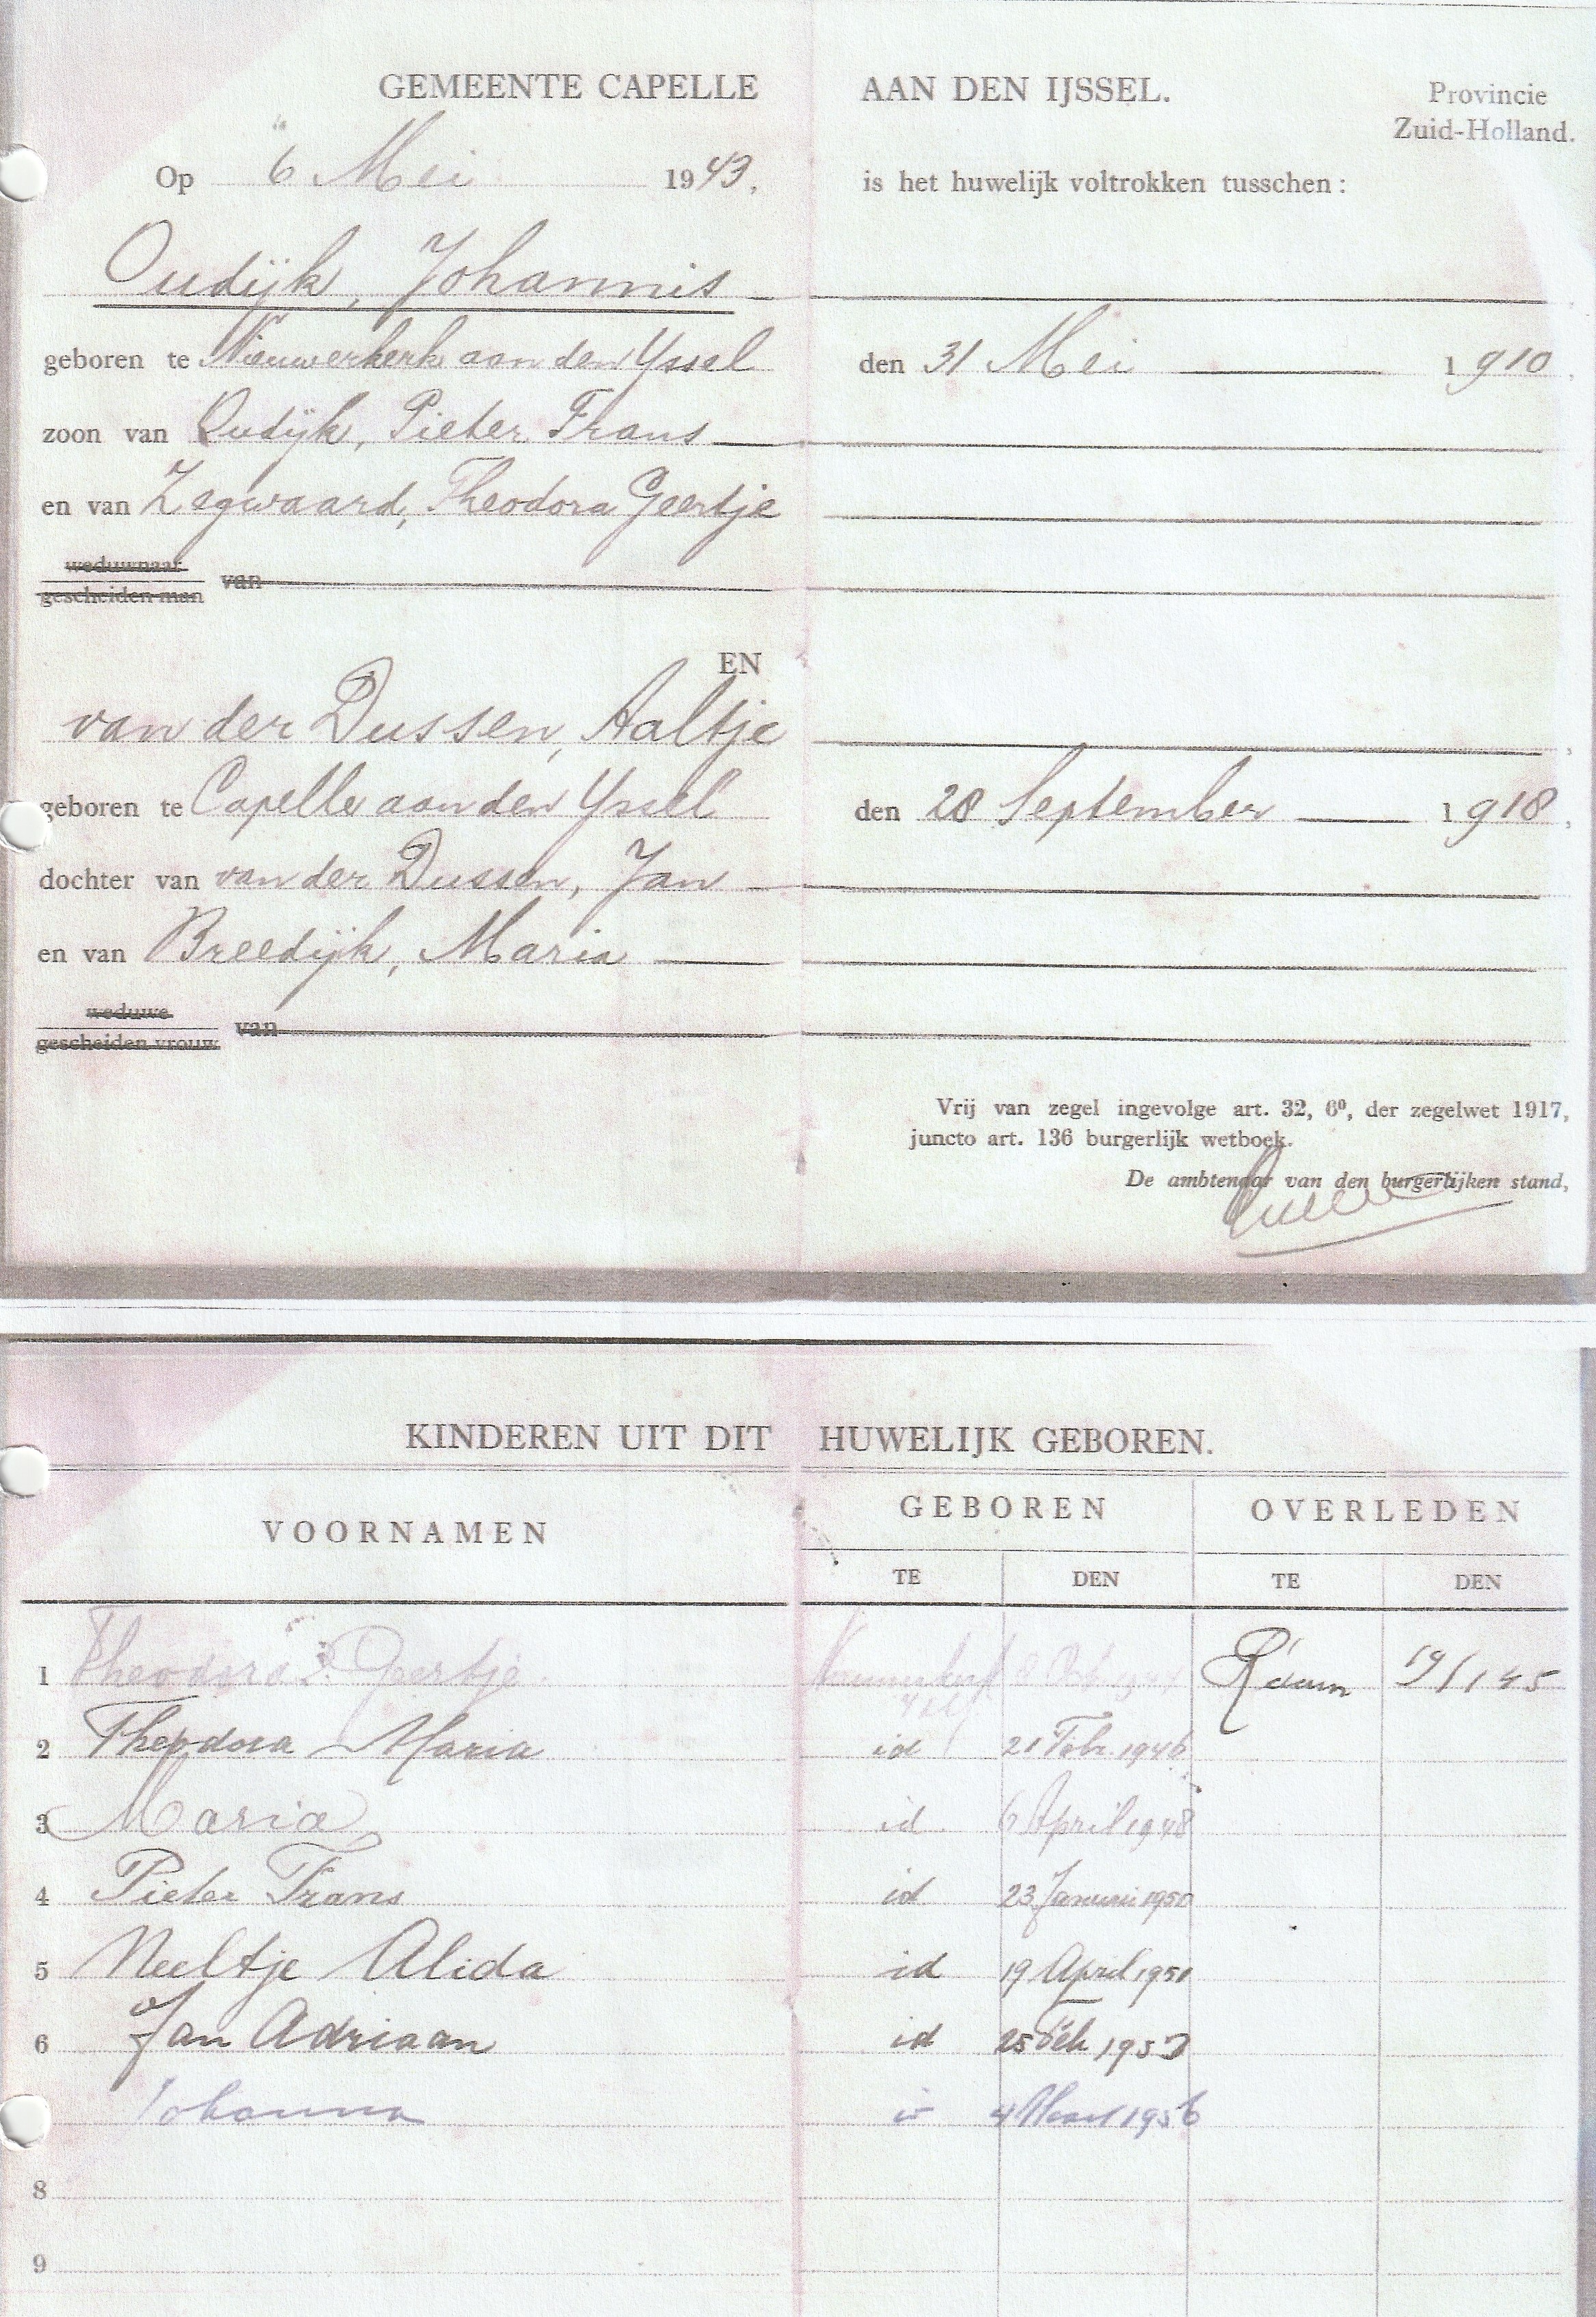 GEMEENTE CAPELLE AAN DEN IJSSEL.
Provincie
Zuid-Holland.
Op 6 Mei 1943. is het huwelijk voltrokken tusschen:
Oudijk, Johannis
geboren te Nieuwerkerk aan den Yssel den 31 Mei 1910.
zoon van Oudijk, Pieter Frans
en van Zegwaard, Theodora Geertje
weduwnaar
gescheiden man van
EN
van der Dussen, Aaltje
geboren te Capelle aan den Yssel den 28 September 1918,
dochter van van der Dussen, Jan
en van Breedijk, Maria
weduwe
gescheiden vrouw van
Vrij van zegel ingevolge art. 32, 6⁰, der zegelwet 1917,
juncto art. 136 burgerlijk wetboek.
De ambtenaar van den burgerlijken stand,
KINDEREN UIT DIT HUWELIJK GEBOREN.
VOORNAMEN GEBOREN OVERLEDEN
TE DEN TE DEN
1 Theodora Geertje R'dam 19/1 45
2 Theodora Maria id 21 Febr. 1946
3 Maria id 6 April 1948
4 Pieter Frans id 23 Januari 1950
5 Neeltje Alida id 19 April 1951
6 Jan Adriaan id 25 Feb 1953
Johanna 4 Maart 1956
8
9